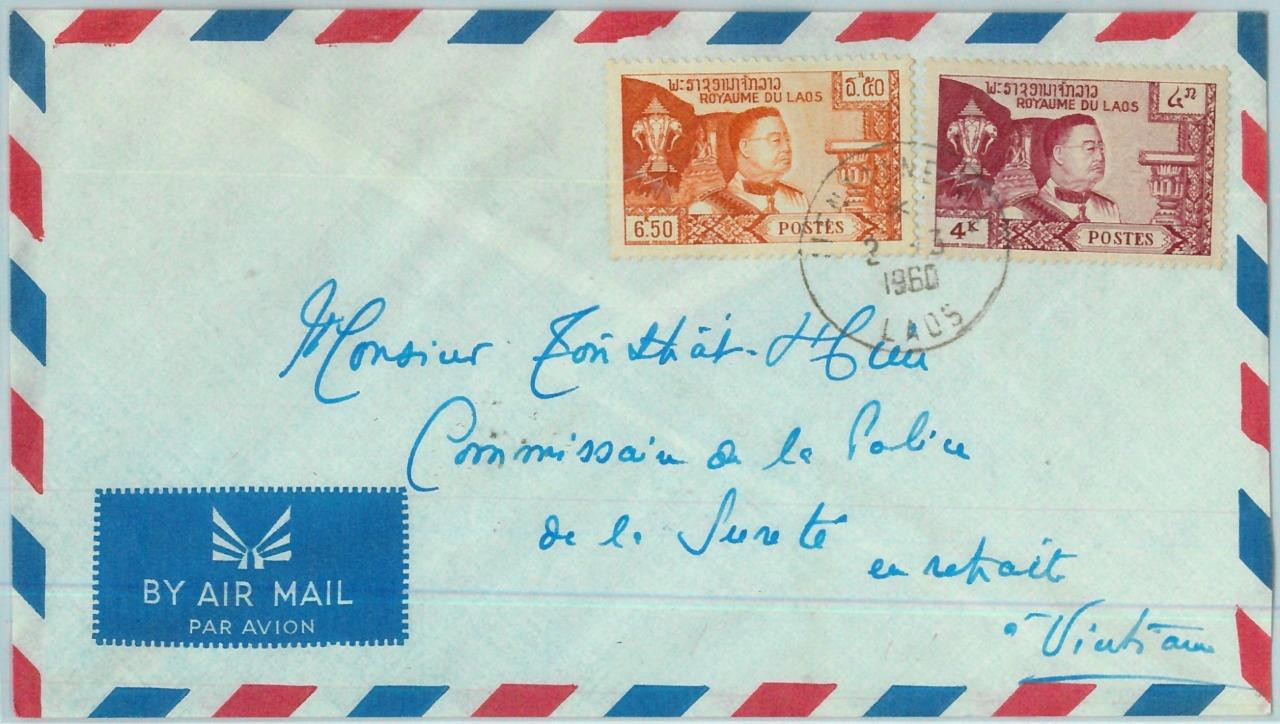 ພະຣາຊອານາຈັກລາວ
ROYAUME DU LAOS
ວ.໕໐
6.50
POSTES
ພະຣາຊອານາຈັກລາວ
ROYAUME DU LAOS
໔ກ
4K
POSTES
VIENTIANE
2 - 3
1960
LAOS
Monsieur Tôn thât-Hieu
Commissaire de la Police
de la Sureté
en retraite
à Vientiane
BY AIR MAIL
PAR AVION